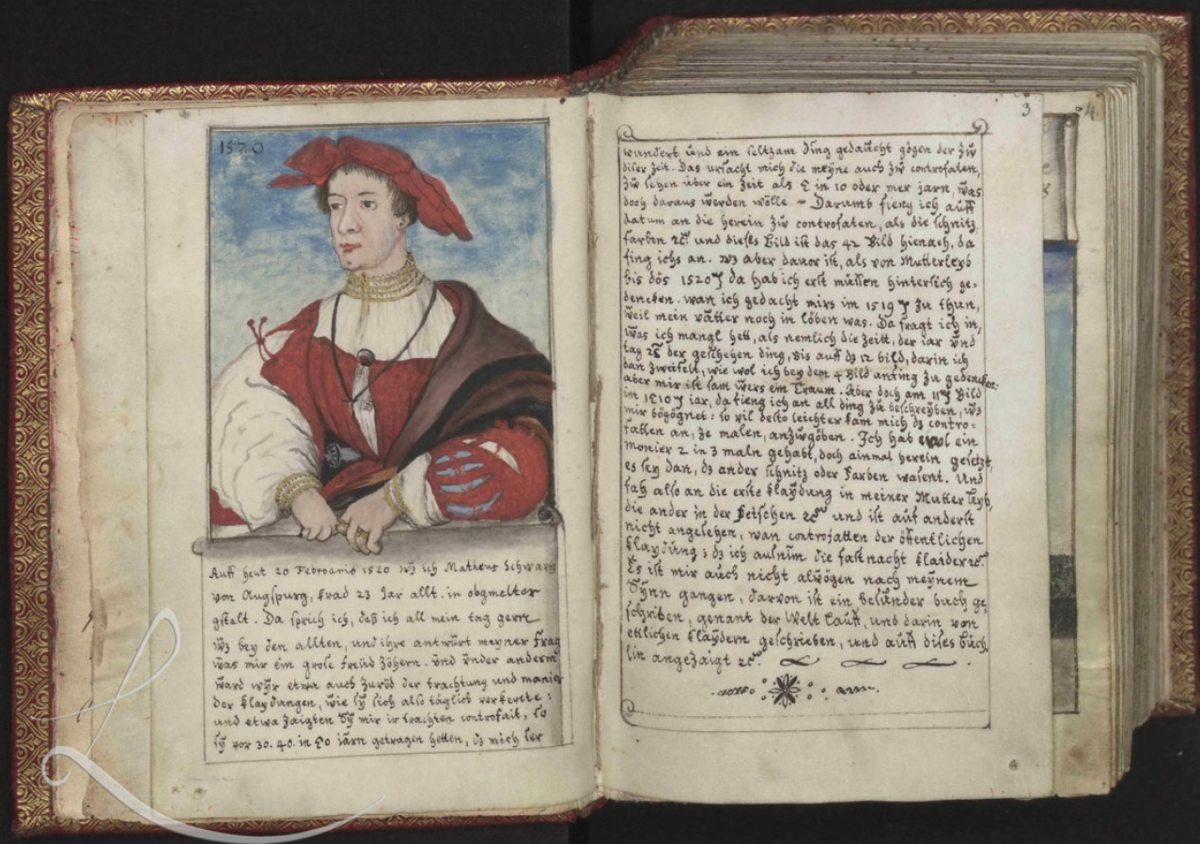 1520
Auff heut 20 Febroario 1520 wz ich Matheus Schwartz
von Augspurg, krad 23 Jar allt. in obgmelter
gstalt. Da sprich ich, daß ich all mein tag gern
wz bey den allten, und ihre antwürt meyner frag
was mir ein grose freüd zöhern. und under anderm
ward wyr etwa auch zuröd der trachtung und manier
der klaydungen, wie sy sich also täglich verkerete:
und etwa zaigten sy mir ir trachten controfait, so
sy vor 30. 40. in 50 jarn getragen hetten, dz mich ser
3
4
wundert und ein seltzam ding gedaücht gögen der zü
diser zeit. Das ursacht mich die meyne auch zü controfaten,
zü sehen über ein zeit als 5 in 10 oder mer jarn, was
doch daraus werden wölle. Darumb fieng ich auff
datum an die herein zü controfaten, als die schnitz
farben und dieses Bild ist das 42 Bild hienach, da
fing ichs an. wz aber davor ist, als von Mutterleyb
bis dös 1520 da hab ich erst müssen hintersich ge-
dencken. wan ich gedacht mirs im 1519 zu thun,
weil mein vätter noch in löben was. Da fragt ich in,
was ich mangl hett, als nemlich die zeitt, der jar und
tag der geschehen ding, bis auff dz 12 bild, darin ich
dan zweifelt, wie wol ich bey dem 4 Bild anfing zu gedencken:
aber mir ist sam wers ein Traum. Aber doch am 11 Bild
im 1510 jar, da fieng ich an all ding zü beschreyben, wz
mir bögögnet: so vil desto leichter kam mich dz contro-
fatten an, ze malen, anzwgöben. Ich hab wol ein
monier 2 in 3 maln gehabt, doch ainmal herein gesetzt,
es sey dan, dz ander schnitz oder Farben wasent. Und
fah also an die erste klaydung in meiner Mutter leyb,
die ander in der Fetschen und ist auf anderst
nicht angesehen, wan controfatten der öffentlichen
klaydüng; dz ich ausnim die fasnacht klaider
Es ist mir auch nicht alwögen nach meynem
Synn gangen, darvon ist ein besünder buch ge-
schriben, genant der Welt Lauff, und darin von
ettlichen klaydern geschrieben, und auff dises büch
lin angezaigt
4